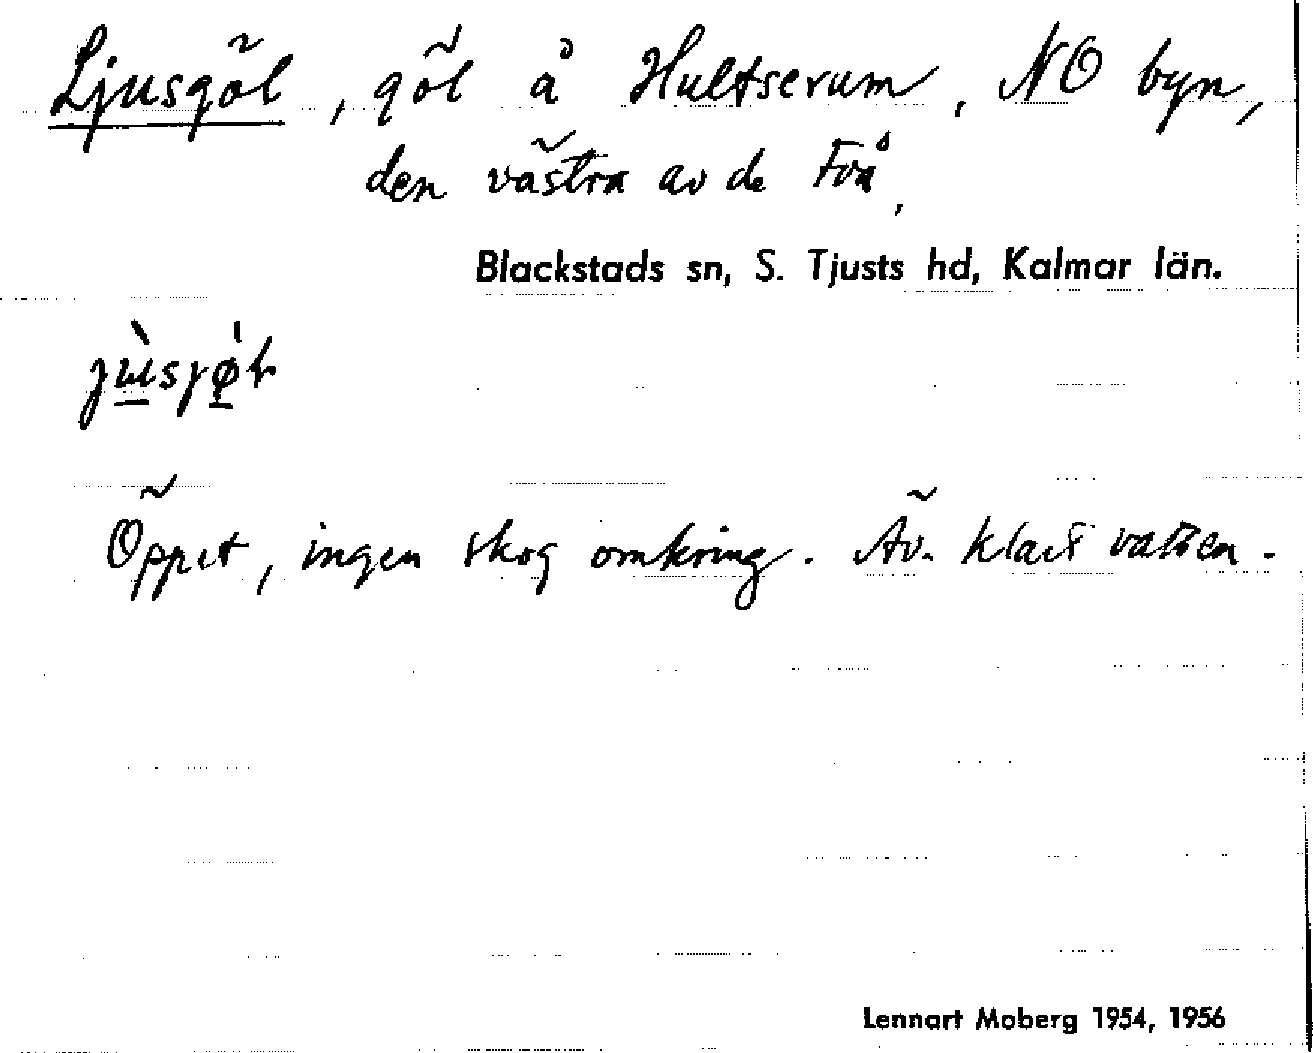 Ljusgöl, göl å Hultserum, NO byn,
den västra av de två,
Blackstads sn, S. Tjusts hd, Kalmar län.
Öppet, ingen skog omkring. Äv. klart vatten.
Lennart Moberg 1954, 1956